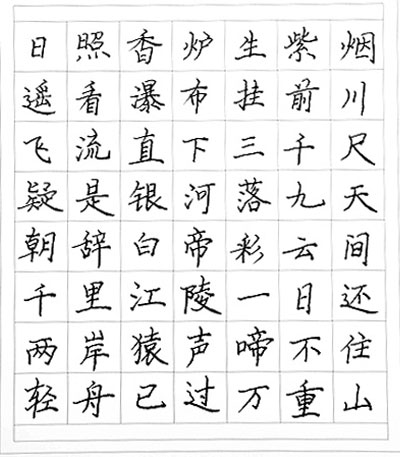 日照香炉生紫烟
遥看瀑布挂前川
飞流直下三千尺
疑是银河落九天
朝辞白帝彩云间
千里江陵一日还
两岸猿声啼不住
轻舟已过万重山